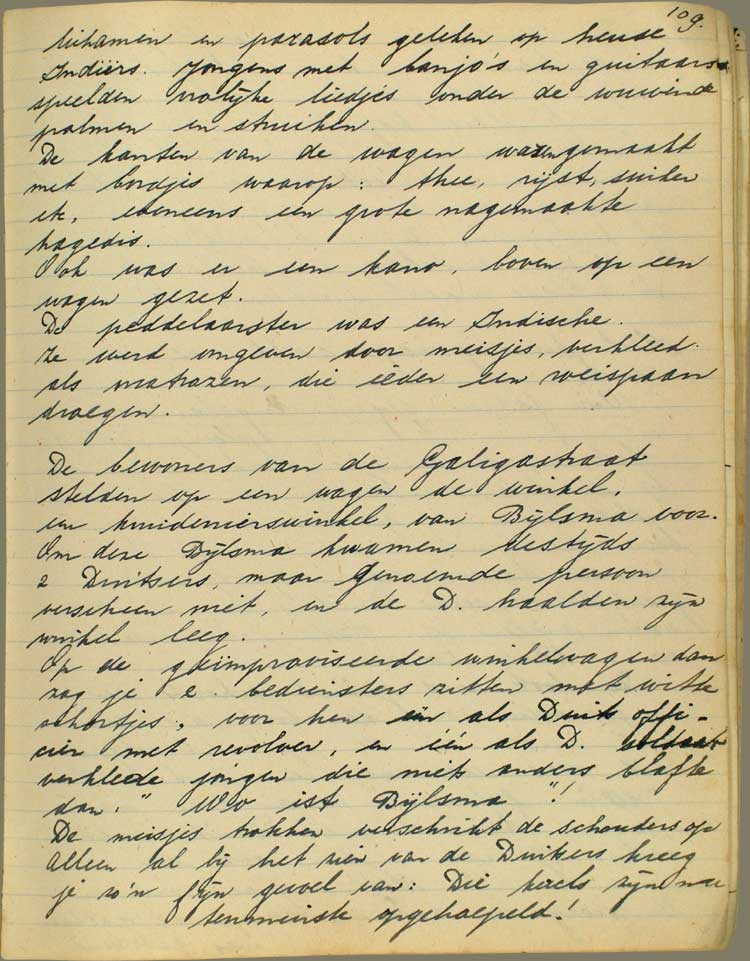 109.
lichamen en parasols geleken op heuse
Indiërs. Jongens met banjo's en guitaars
speelden vrolijke liedjes onder de wuivende
palmen en struiken.
De kanten van de wagen waren gemaakt
met bordjes waarop: thee, rijst, suiker
etc, eveneens een grote nagemaakte
hagedis.
Ook was er een kano, boven op een
wagen gezet.
De peddelaarster was een Indische.
Ze werd omgeven door meisjes, verkleed
als matrozen, die ieder een roeispaan
droegen.
De bewoners van de Galigastraat
stelden op een wagen de winkel,
een kruidenierswinkel, van Bijlsma voor.
Om deze Bijlsma kwamen destijds
2 Duitsers, maar genoemde persoon
verscheen niet, en de D. haalden zijn
winkel leeg.
Op de geïmproviseerde winkelwagen dan
zag je 2 bediensters zitten met witte
schortjes, voor hen één als Duits offi-
cier met revolver, en één als D. soldaat
verklede jongen die niets anders blafte
dan: "Wo ist Bijlsma"!
De meisjes trokken verschrikt de schouders op
Alleen al bij het zien van de Duitsers kreeg
je zo'n fijn gevoel van: Die kerels zijn nu
tenminste opgehoepeld!